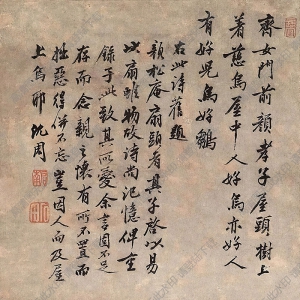 齊女門前顏孝子屋頭樹上
著慈烏屋中人好烏亦好人
有好兒烏好鶵
右此詩舊題
顏松庵扇頭者其子啓以易
以扇雖物故詩尚記憶俾重
錄于此致其所愛余言固不足
存而念親之懷有所不置而
拙惡得併不忘豈因人而及屋
上烏邪沈周